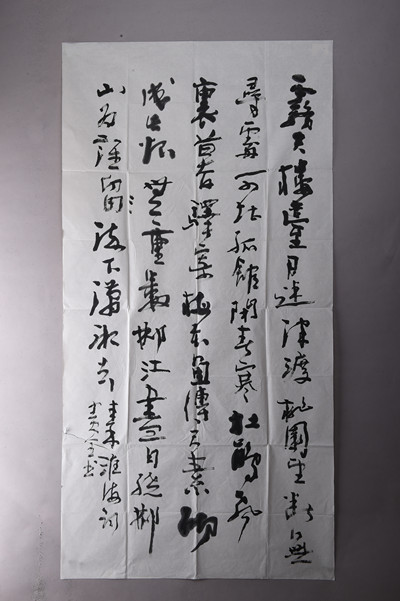 霧失樓臺月迷津渡桃園望斷無
尋處可堪孤館閉春寒杜鵑聲
裏暮驛寄梅花魚傳尺素砌
成此恨無重數郴江幸自繞郴
山為誰流下瀟湘去秦淮海詞
書